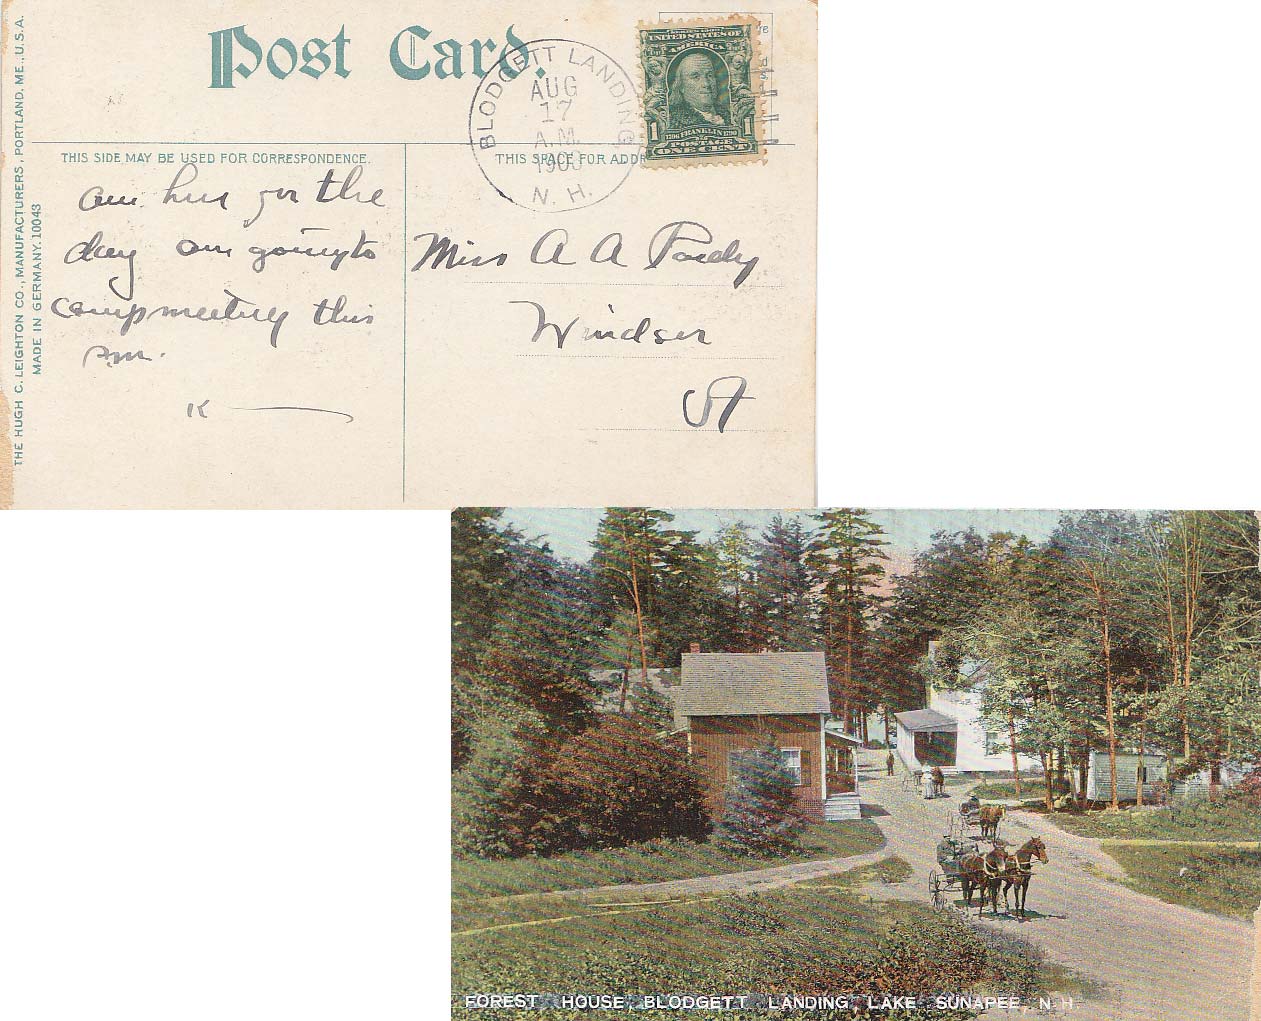 THE HUGH C. LEIGHTON CO., MANUFACTURERS, PORTLAND, ME., U.S.A.
MADE IN GERMANY. 10043
Post Card.
BLODGETT LANDING
AUG
17
A.M.
N. H.
SERIES 1902
UNITED STATES OF
AMERICA
1 1706 FRANKLIN 1790 1
POSTAGE
ONE CENT
THIS SIDE MAY BE USED FOR CORRESPONDENCE.
THIS SPACE FOR ADDR
am here for the
day am going to
campmeeting this
P.m.
K
Miss A A
Windsor
Vt
FOREST HOUSE, BLODGETT LANDING, LAKE SUNAPEE, N. H.